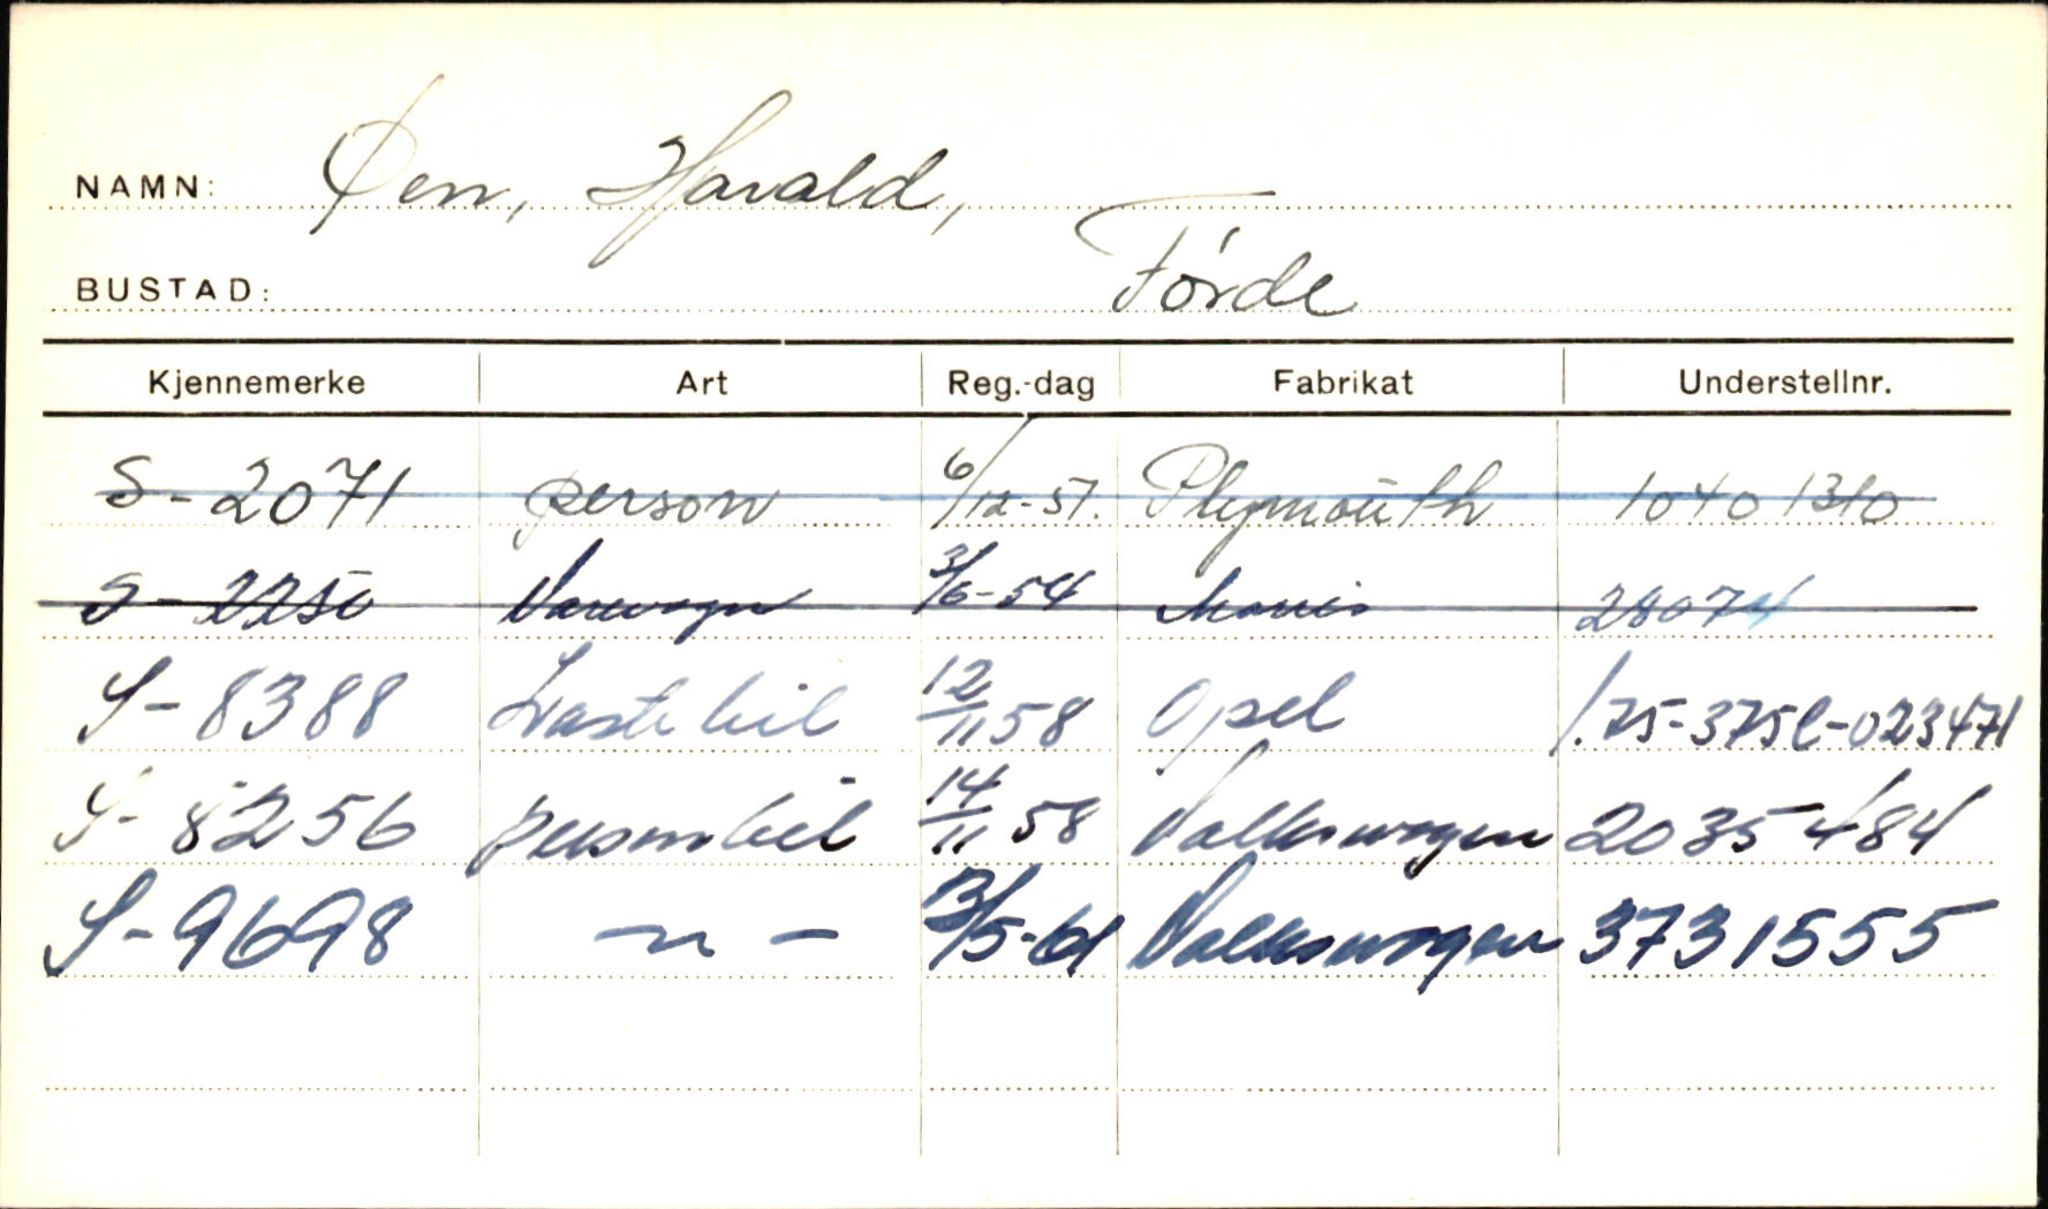 NAMN: Øen, Harald,
BUSTAD: Førde
Kjennemerke Art Reg.-dag Fabrikat Understellnr.
S-2071 person 6/12-51. Plymouth 10401310
S-2250 Varevogn 3/6-54 Morris 28074
S-8388 Lastebil 12/11 58 Opel 1.75-375L-023471
S-8256 personbil 14/11 58 Volkswagen 2035484
S-9698 -"- 13/5-61 Volkswagen 3731555